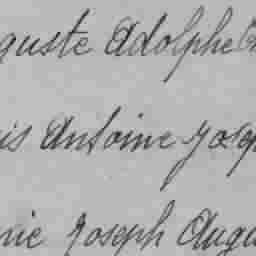 guste Adolphe
is Antoine Josep
nie Joseph Augu